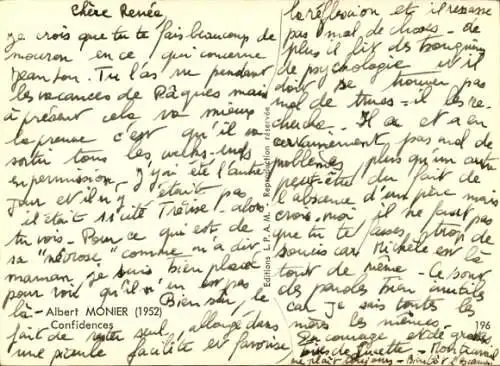 Chère Renée
Je crois que tu te fais beaucoup de
mouron en ce qui concerne
Jean Lou. Tu l'as vu pendant
les vacances de Pâques mais
à présent cela va mieux
la preuve c'est qu'il va
sortir tous les week-ends
en permission. J'y ai été l'autre
jour et il n'y était pas
il était cité Trévise - alors
tu vois - Pour ce qui est de
sa "névrose" comme m'a dit
maman je suis bien placé
pour voir qu'il n'en est pas
là - Bien sûr, le
fait de rester seul, allongé dans
une piaule facilite et favorise
la réflexion et il ressasse
pas mal de choses - de
plus il lit des bouquins
de psychologie et il
doit se trouver pas
mal de trucs - il les re-
cherche. Il a et a eu
certainement pas mal de
problèmes plus qu'un autre
peut-être du fait de
l'absence d'un père mais
crois-moi il ne faut pas
que tu te fasses trop de
soucis car Michèle est là
tout de même - Ce sont
des paroles bien inutiles
car je sais toutes les
mères les mêmes -
Bon courage et de grosses
bises de Lucette - Montravail
me plaît toujours - Bientôt
Albert MONIER (1952)
Confidences
Editions E.P.A.M. - Reproduction réservée
196